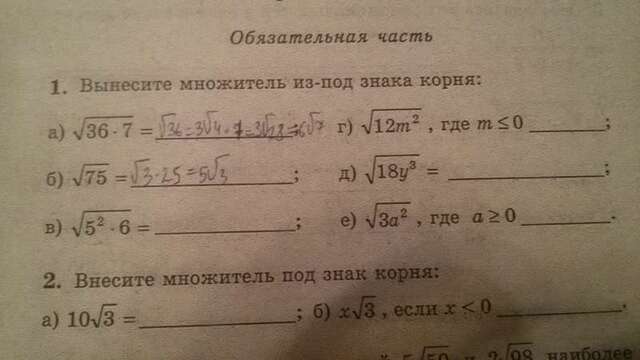 Обязательная часть
1. Вынесите множитель из-под знака корня:
а) √36·7 = √36=3√4·7=3√28=6√7 г) √12m², где m ≤ 0 ______;
б) √75 = √3·25=5√3 ; д) √18y³ = ______;
в) √5²·6 = ______; е) √3a², где a ≥ 0 ______.
2. Внесите множитель под знак корня:
а) 10√3 = ______; б) x√3, если x < 0 ______.
5√50 и 2√98 наиболее